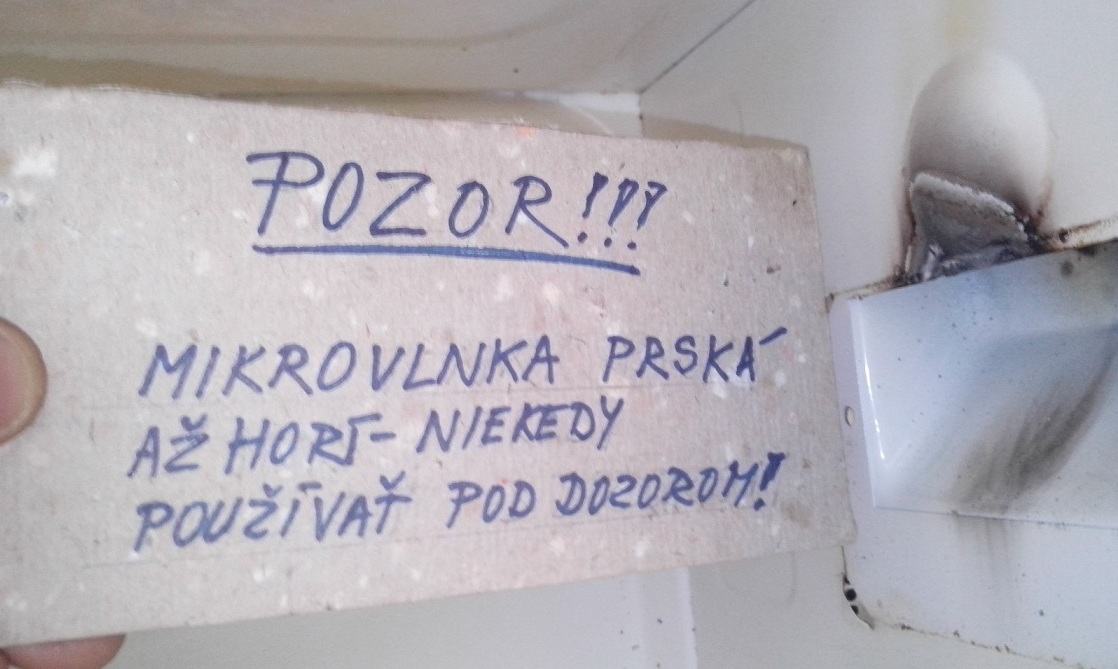 POZOR!!!
MIKROVLNKA PRSKÁ
AŽ HORÍ- NIEKEDY
POUŽÍVAŤ POD DOZOROM!